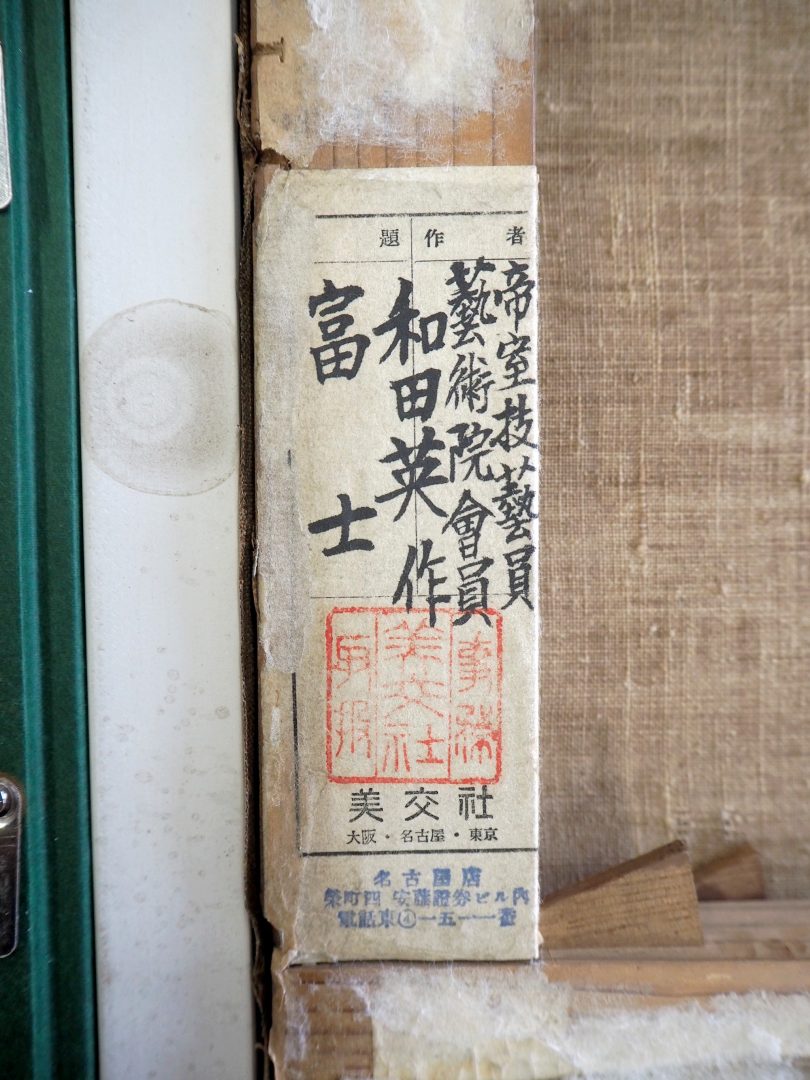 作者
題
帝室技藝員
藝術院會員
和田英作
富士
美交社
美交社
大阪・名古屋・東京
名古屋店
榮町四 安藤證券ビル内
電話東④一五一一番